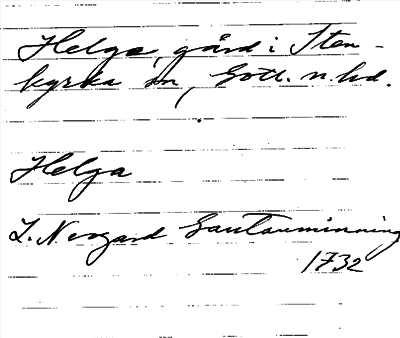 Helga, gård i Sten-
kyrka sn, Gotl. n. hd.
Helga
L. Nergard Gautauminning
1732